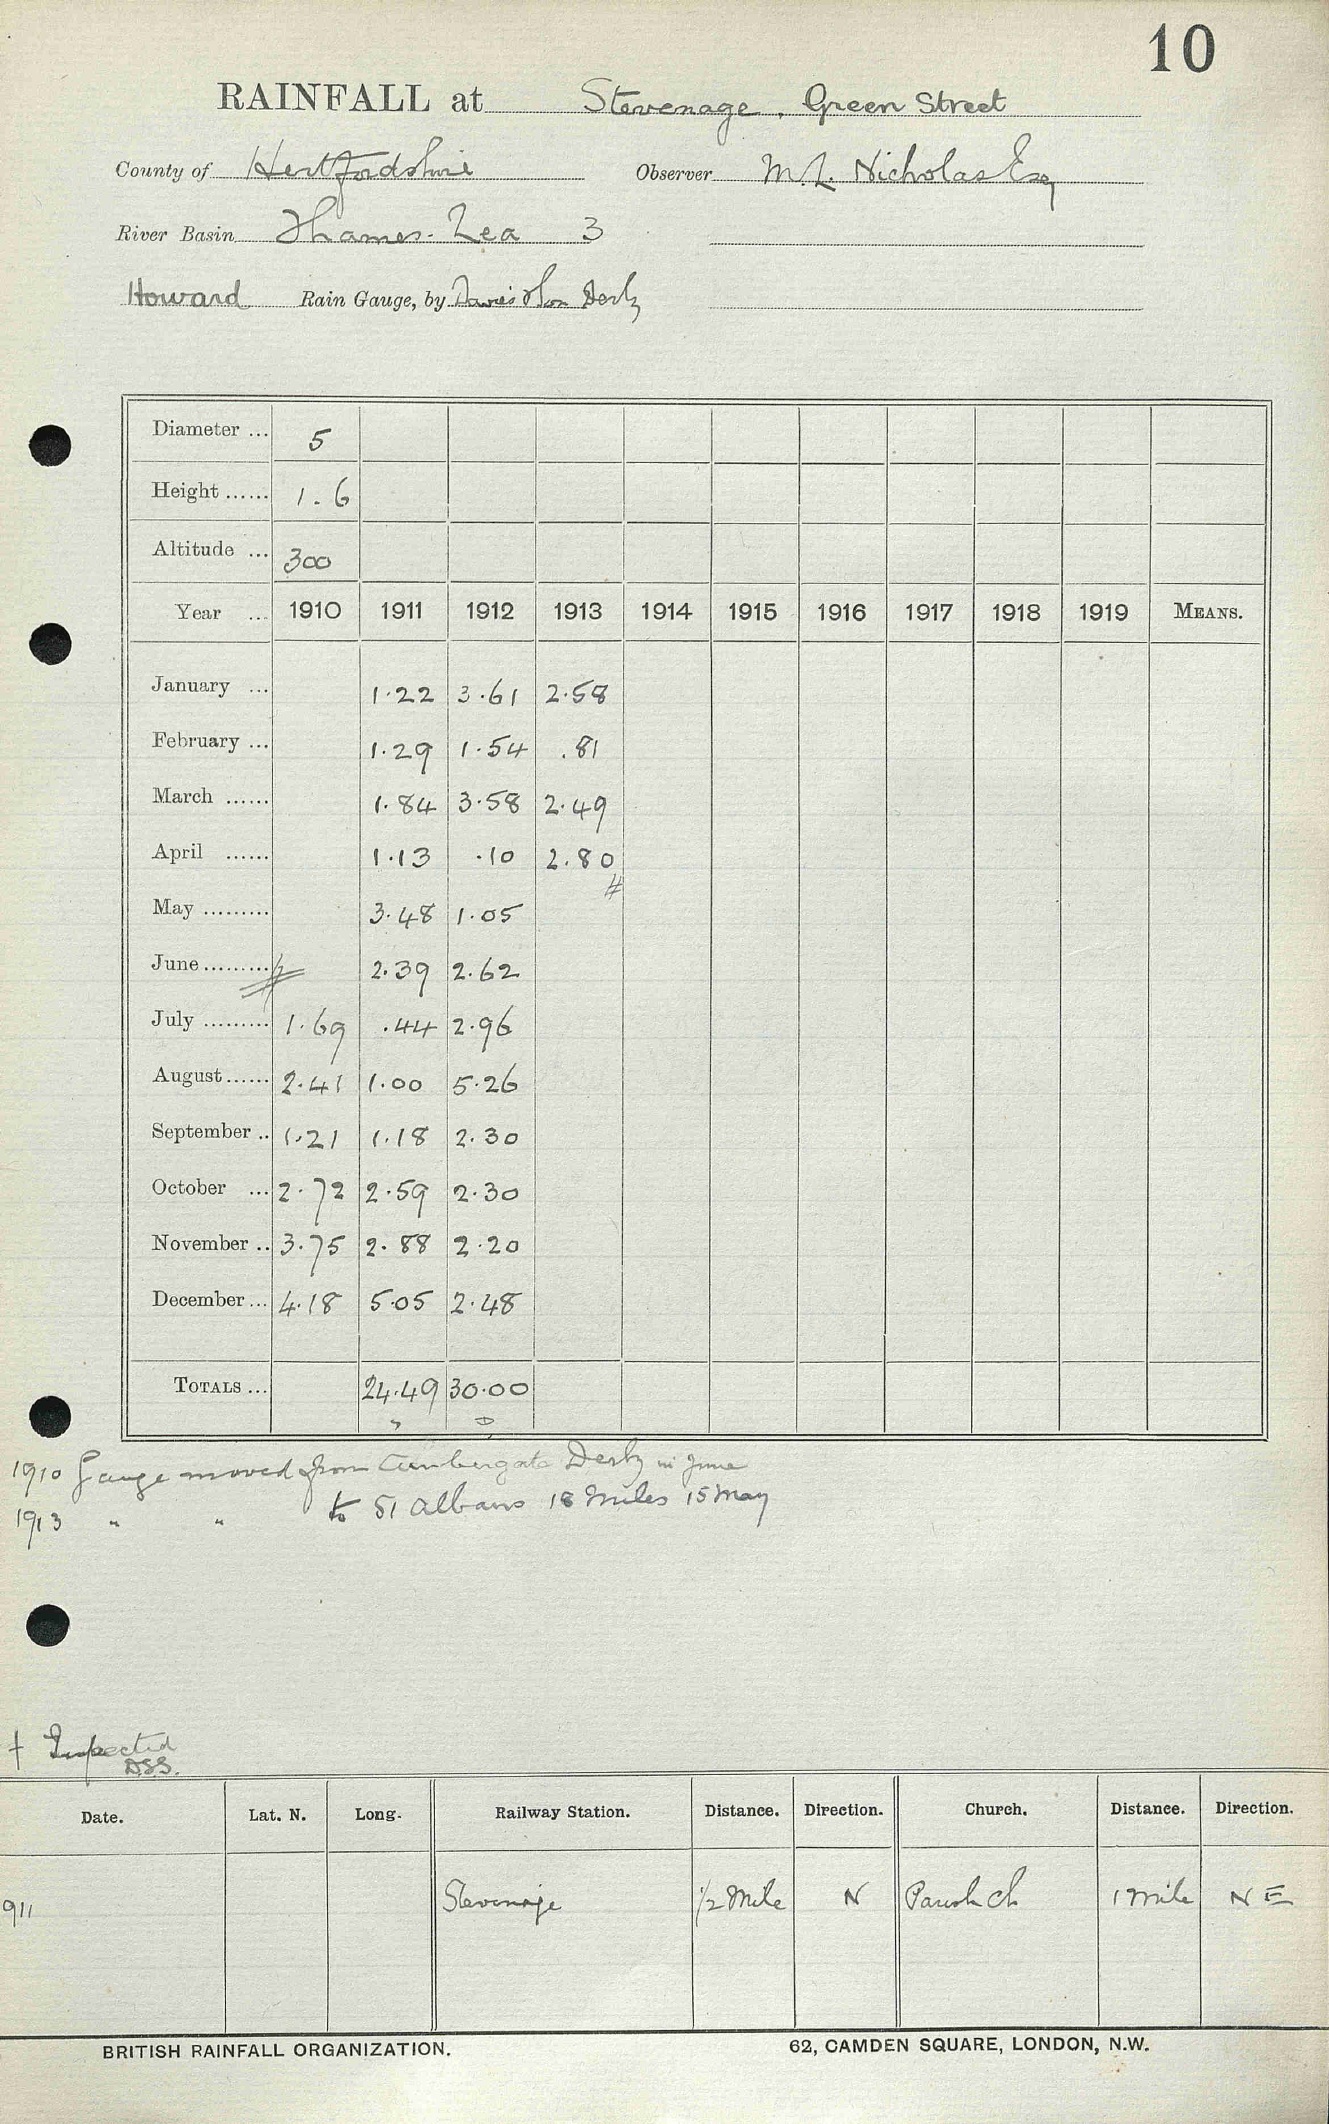 10
RAINFALL at Stevenage, Green Street
County of Hertfordshire Observer M.L. Nicholas Esq
River Basin Thames-Lea 3
Howard Rain Gauge, by Davis & Son Derby
Diameter ... 5
Height ...... 1.6
Altitude ... 300
Year ... 1910 1911 1912 1913 1914 1915 1916 1917 1918 1919 MEANS.
January ... 1.22 3.61 2.58
February ... 1.29 1.54 .81
March ...... 1.84 3.58 2.49
April ...... 1.13 .10 2.80
May ......... 3.48 1.05
June ......... 2.39 2.62
July ......... 1.69 .44 2.96
August ...... 2.41 1.00 5.26
September .. 1.21 1.18 2.30
October ... 2.72 2.59 2.30
November .. 3.75 2.88 2.20
December ... 4.18 5.05 2.48
TOTALS ... 24.49 30.00
1910 Gauge moved from Ambergate Derby in June
1913 " " to St Albans 18 Miles 15 May
† Inspected
D.S.S.
Date. Lat. N. Long. Railway Station. Distance. Direction. Church. Distance. Direction.
911 Stevenage 1/2 Mile N Parish Ch 1 Mile N E
BRITISH RAINFALL ORGANIZATION. 62, CAMDEN SQUARE, LONDON, N.W.